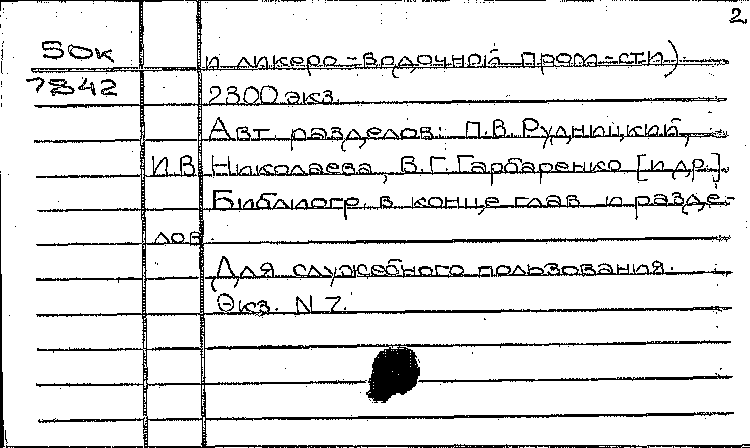 2.
50к
7842
и ликеро-водочной пром-сти)
2300 экз.
Авт. разделов: П.В. Рудницкий,
И.В. Николаева, В.Г. Гарбаренко [и др.].
Библиогр. в конце глав и разде-
лов.
Для служебного пользования.
Экз. N 7.